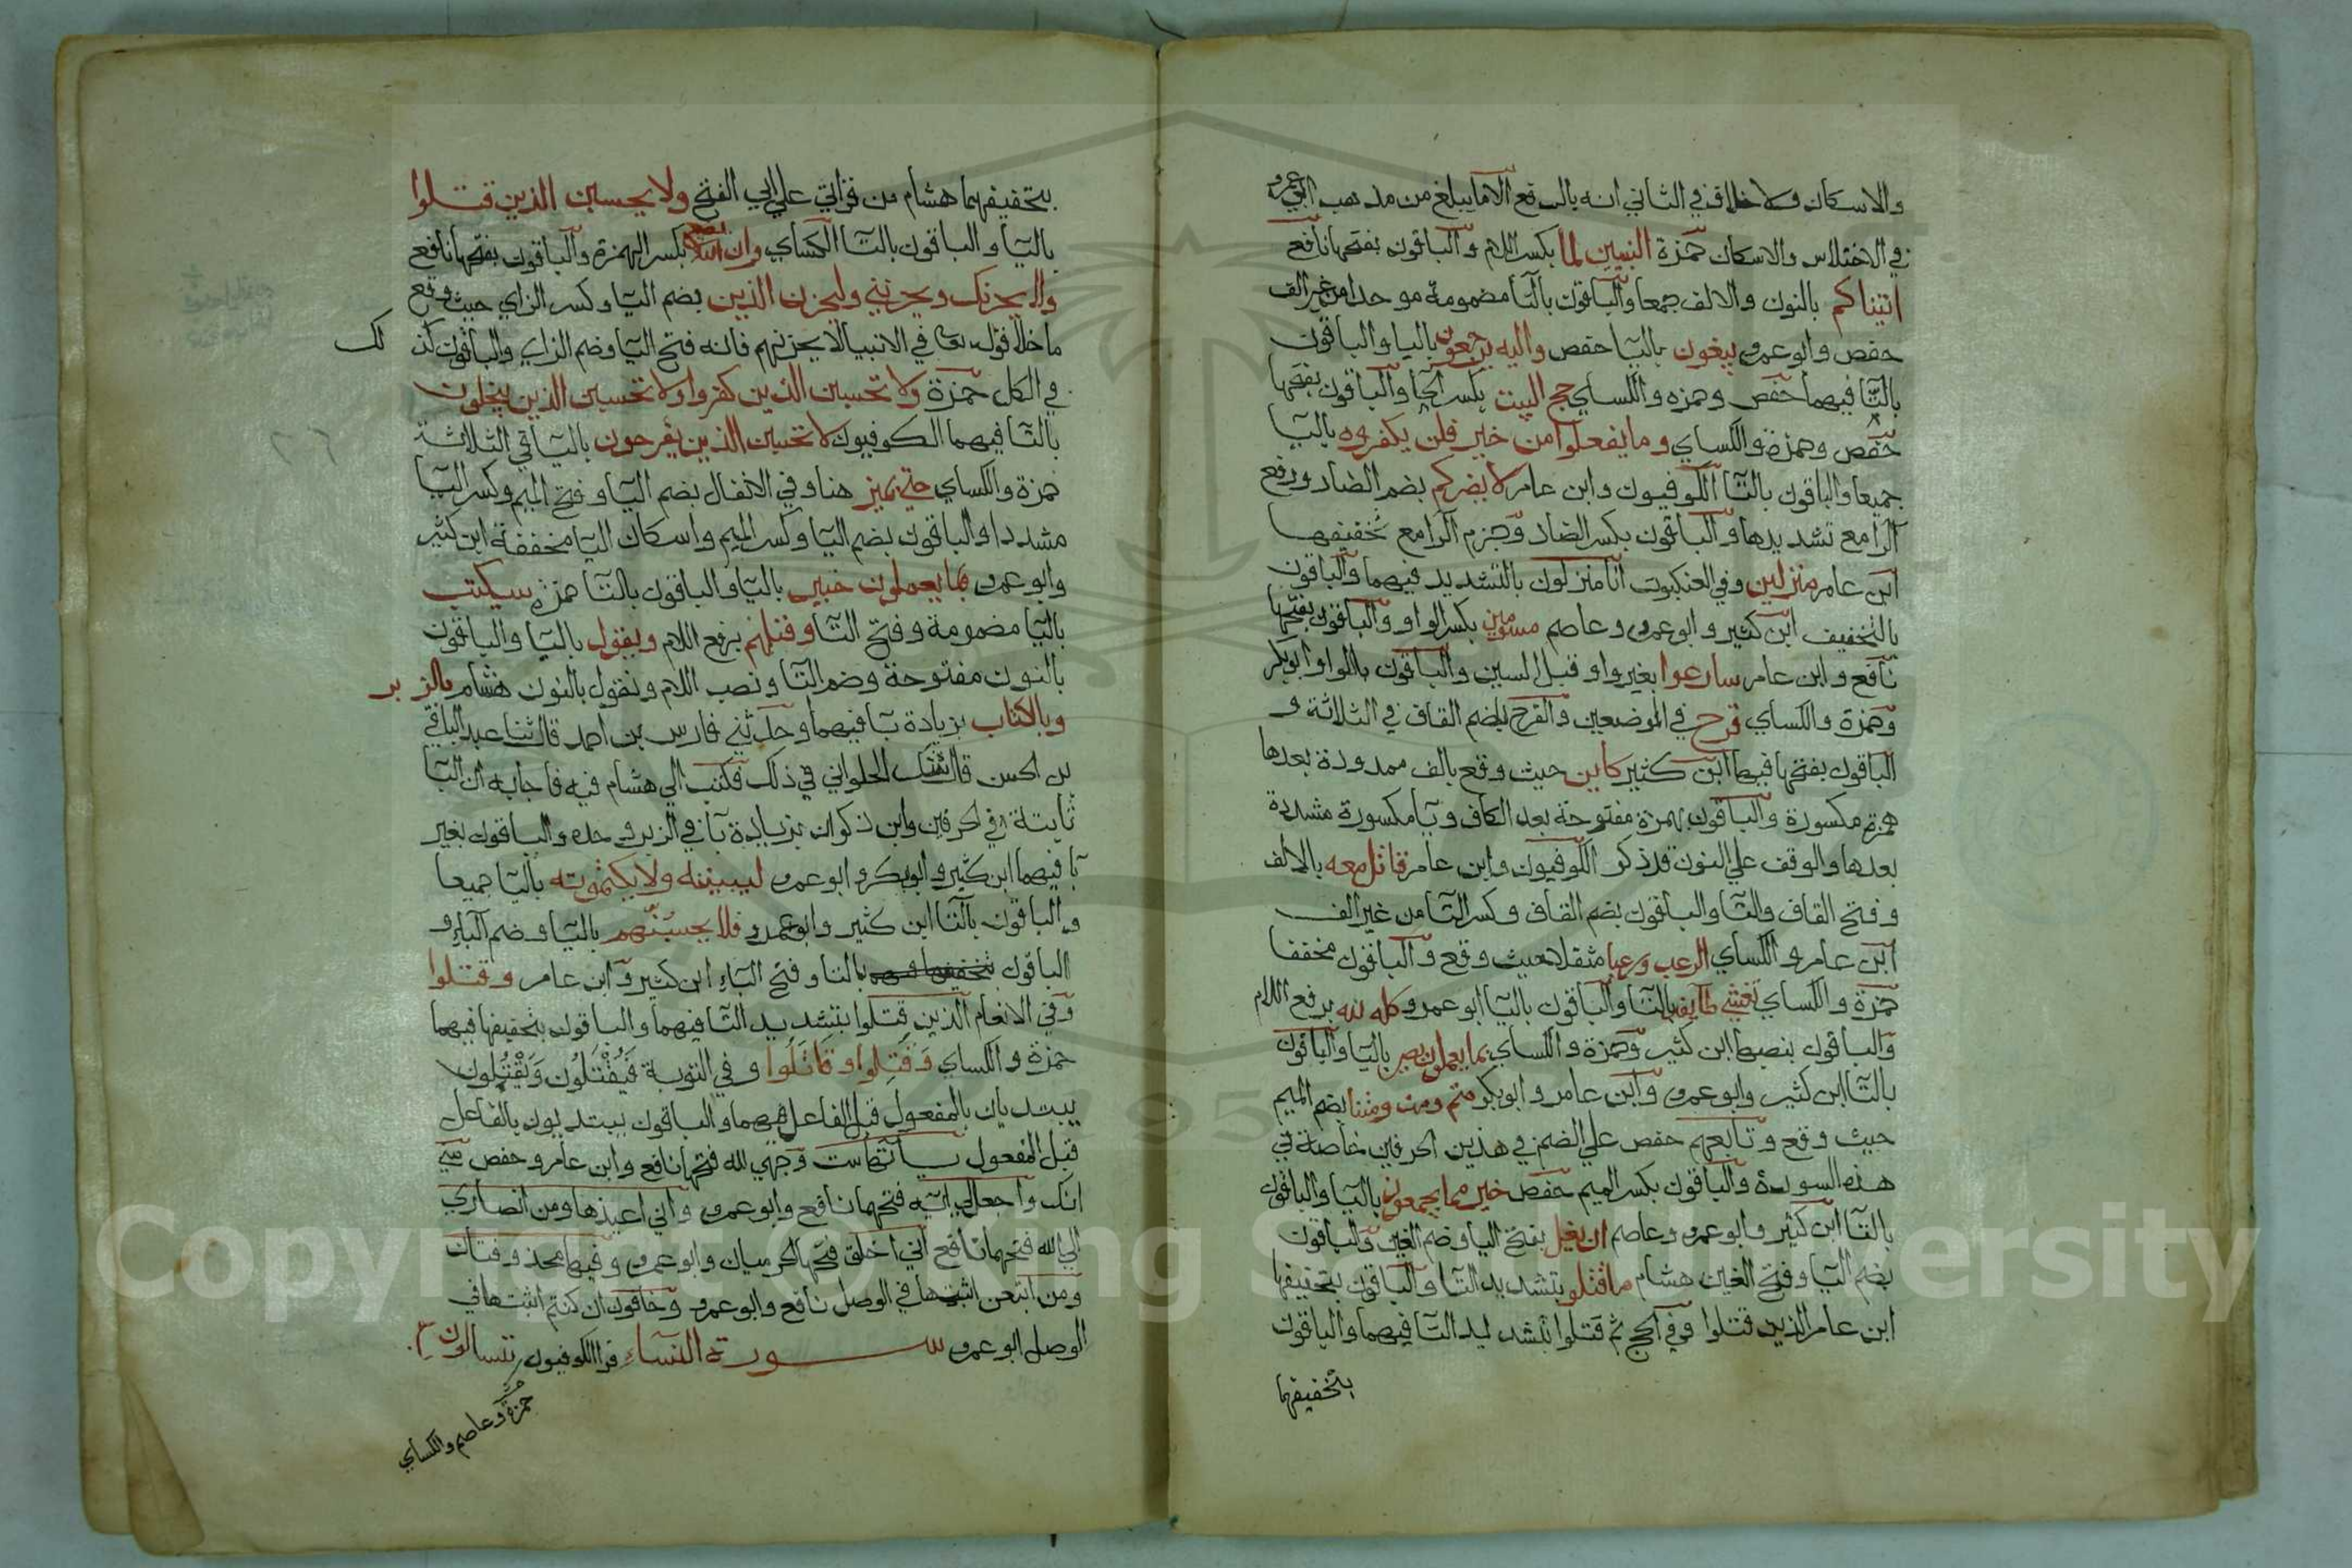 والاسكان ولا خلاف في الثاني انه بالرفع الا ما يبلغ من مذهب ابي عمرو
في الاختلاس والاسكان حمزة النبيين لما بكسر اللام والباقون بفتحها نافع
اتيناكم بالنون والالف جمعا والباقون بالتا مضمومة موحدا من غير الف
حفص وابو عمرو يبغون باليا حفص واليه يرجعون باليا والباقون
بالتا فيهما حفص وحمزه والكساي حج البيت بكسر الحا والباقون بفتحها
حفص وحمزة والكساي وما يفعلوا من خير فلن يكفروه باليا
جميعا والباقون بالتا الكوفيون وابن عامر لا يضركم بضم الضاد ورفع
الرا مع تشديدها والباقون بكسر الضاد وجزم الرا مع تخفيفها
ابن عامر منزلين وفي العنكبوت انا منزلون بالتشديد فيهما والباقون
بالتخفيف ابن كثير وابو عمرو وعاصم مسومين بكسر الواو والباقون بفتحها
نافع وابن عامر سارعوا بغير واو قبل السين والباقون بالواو ابو بكر
وحمزة والكساي قرح في الموضعين والقرح بضم القاف في الثلاثة و
الباقون بفتحها فيها ابن كثير كاين حيث وقع بالف ممدودة بعدها
همزة مكسورة والباقون بهمزة مفتوحة بعد الكاف ويا مكسورة مشددة
بعدها والوقف علي النون قد ذكر الكوفيون وابن عامر قاتل معه بالالف
وفتح القاف والتا والباقون بضم القاف وكسر التا من غير الف
ابن عامر والكساي الرعب ورعبا مثقلا حيث وقع والباقون مخففا
حمزة والكساي تغشي طايفة بالتا والباقون باليا ابو عمرو كله لله برفع اللام
والباقون بنصبها ابن كثير وحمزة والكساي بما يعملون بصير باليا والباقون
بالتا ابن كثير وابو عمرو وابن عامر وابو بكر متم ومت ومتنا بضم الميم
حيث وقع وتابعهم حفص علي الضم في هذين الحرفين خاصة في
هذه السورة والباقون بكسر الميم حفص خير مما يجمعون باليا والباقون
بالتا ابن كثير وابو عمرو وعاصم ان يغل بفتح اليا وضم الغين والباقون
بضم اليا وفتح الغين هشام ما قتلوا بتشديد التا والباقون بتخفيفها
ابن عامر الذين قتلوا وفي الحج ثم قتلوا بتشديد التا فيهما والباقون
بتخفيفهما
بتخفيفهما هشام من قراتي علي ابي الفتح ولا يحسبن الذين قتلوا
باليا والباقون بالتا الكساي وان الله بكسر الهمزة والباقون بفتحها نافع
ولا يحزنك ويحزنني وليحزن الذين بضم اليا وكسر الزاي حيث وقع
ما خلا قوله تعا في الانبيا لا يحزنهم فانه فتح اليا وضم الزاي والباقون كذ لك
في الكل حمزة ولا تحسبن الذين كفروا ولا تحسبن الذين يبخلون
بالتا فيهما الكوفيون لا تحسبن الذين يفرحون باليا في الثلاثة
حمزة والكساي حتي يميز هنا وفي الانفال بضم اليا وفتح الميم وكسر اليا
مشددا والباقون بضم اليا وكسر الميم واسكان اليا مخففة ابن كثير
وابو عمرو بما يعملون خبير باليا والباقون بالتا حمزة سيكتب
باليا مضمومة وفتح التا وقتلهم برفع اللام ويقول باليا والباقون
بالنون مفتوحة وضم التا ونصب اللام ونقول بالنون هشام بالزبر
وبالكتاب بزيادة با فيهما وحدثني فارس بن احمد قال ثنا عبد الباقي
بن الحسن قال شك الحلواني في ذلك فكتب الي هشام فيه فاجابه ان البا
ثابتة في الحرفين وابن ذكوان بزيادة با في الزبر وحده والباقون بغير
با فيهما ابن كثير وابو بكر وابو عمرو ليبيننه ولا يكتمونه باليا جميعا
والباقون بالتا ابن كثير وابو عمرو فلا يحسبنهم باليا وضم الباء و
الباقون بالتا وفتح الباء ابن كثير وابن عامر وقتلوا
وفي الانعام الذين قتلوا بتشديد التا فيهما والباقون بتخفيفها فيهما
حمزة والكساي وَقُتِلوا وقَاتَلُوا وفي التوبة فَيُقْتَلُون وَيَقْتُلون
يبتديان بالمفعول قبل الفاعل فيهما والباقون يبتديون بالفاعل
قبل المفعول ياتها ست وجهي لله فتحها نافع وابن عامر وحفص مني
انك واجعل لي اية فتحهما نافع وابو عمرو واني اعيذها ومن انصاري
الي الله فتحهما نافع اني اخلق فتحها الحرميان وابو عمرو وفيها محذوفتان
ومن اتبعن اثبتها في الوصل نافع وابو عمرو وخافون ان كنتم اثبتها في
الوصل ابو عمرو سورة النساء قرا الكوفيون تسالون
حمزة وعاصم والكساي
Copyright © King Saud University